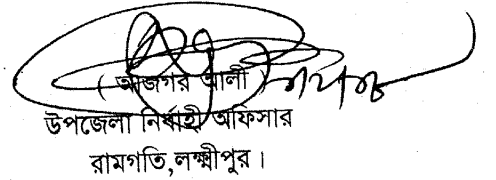 ( আজগর আলী )
উপজেলা নির্বাহী অফিসার
রামগতি,লক্ষ্মীপুর ।